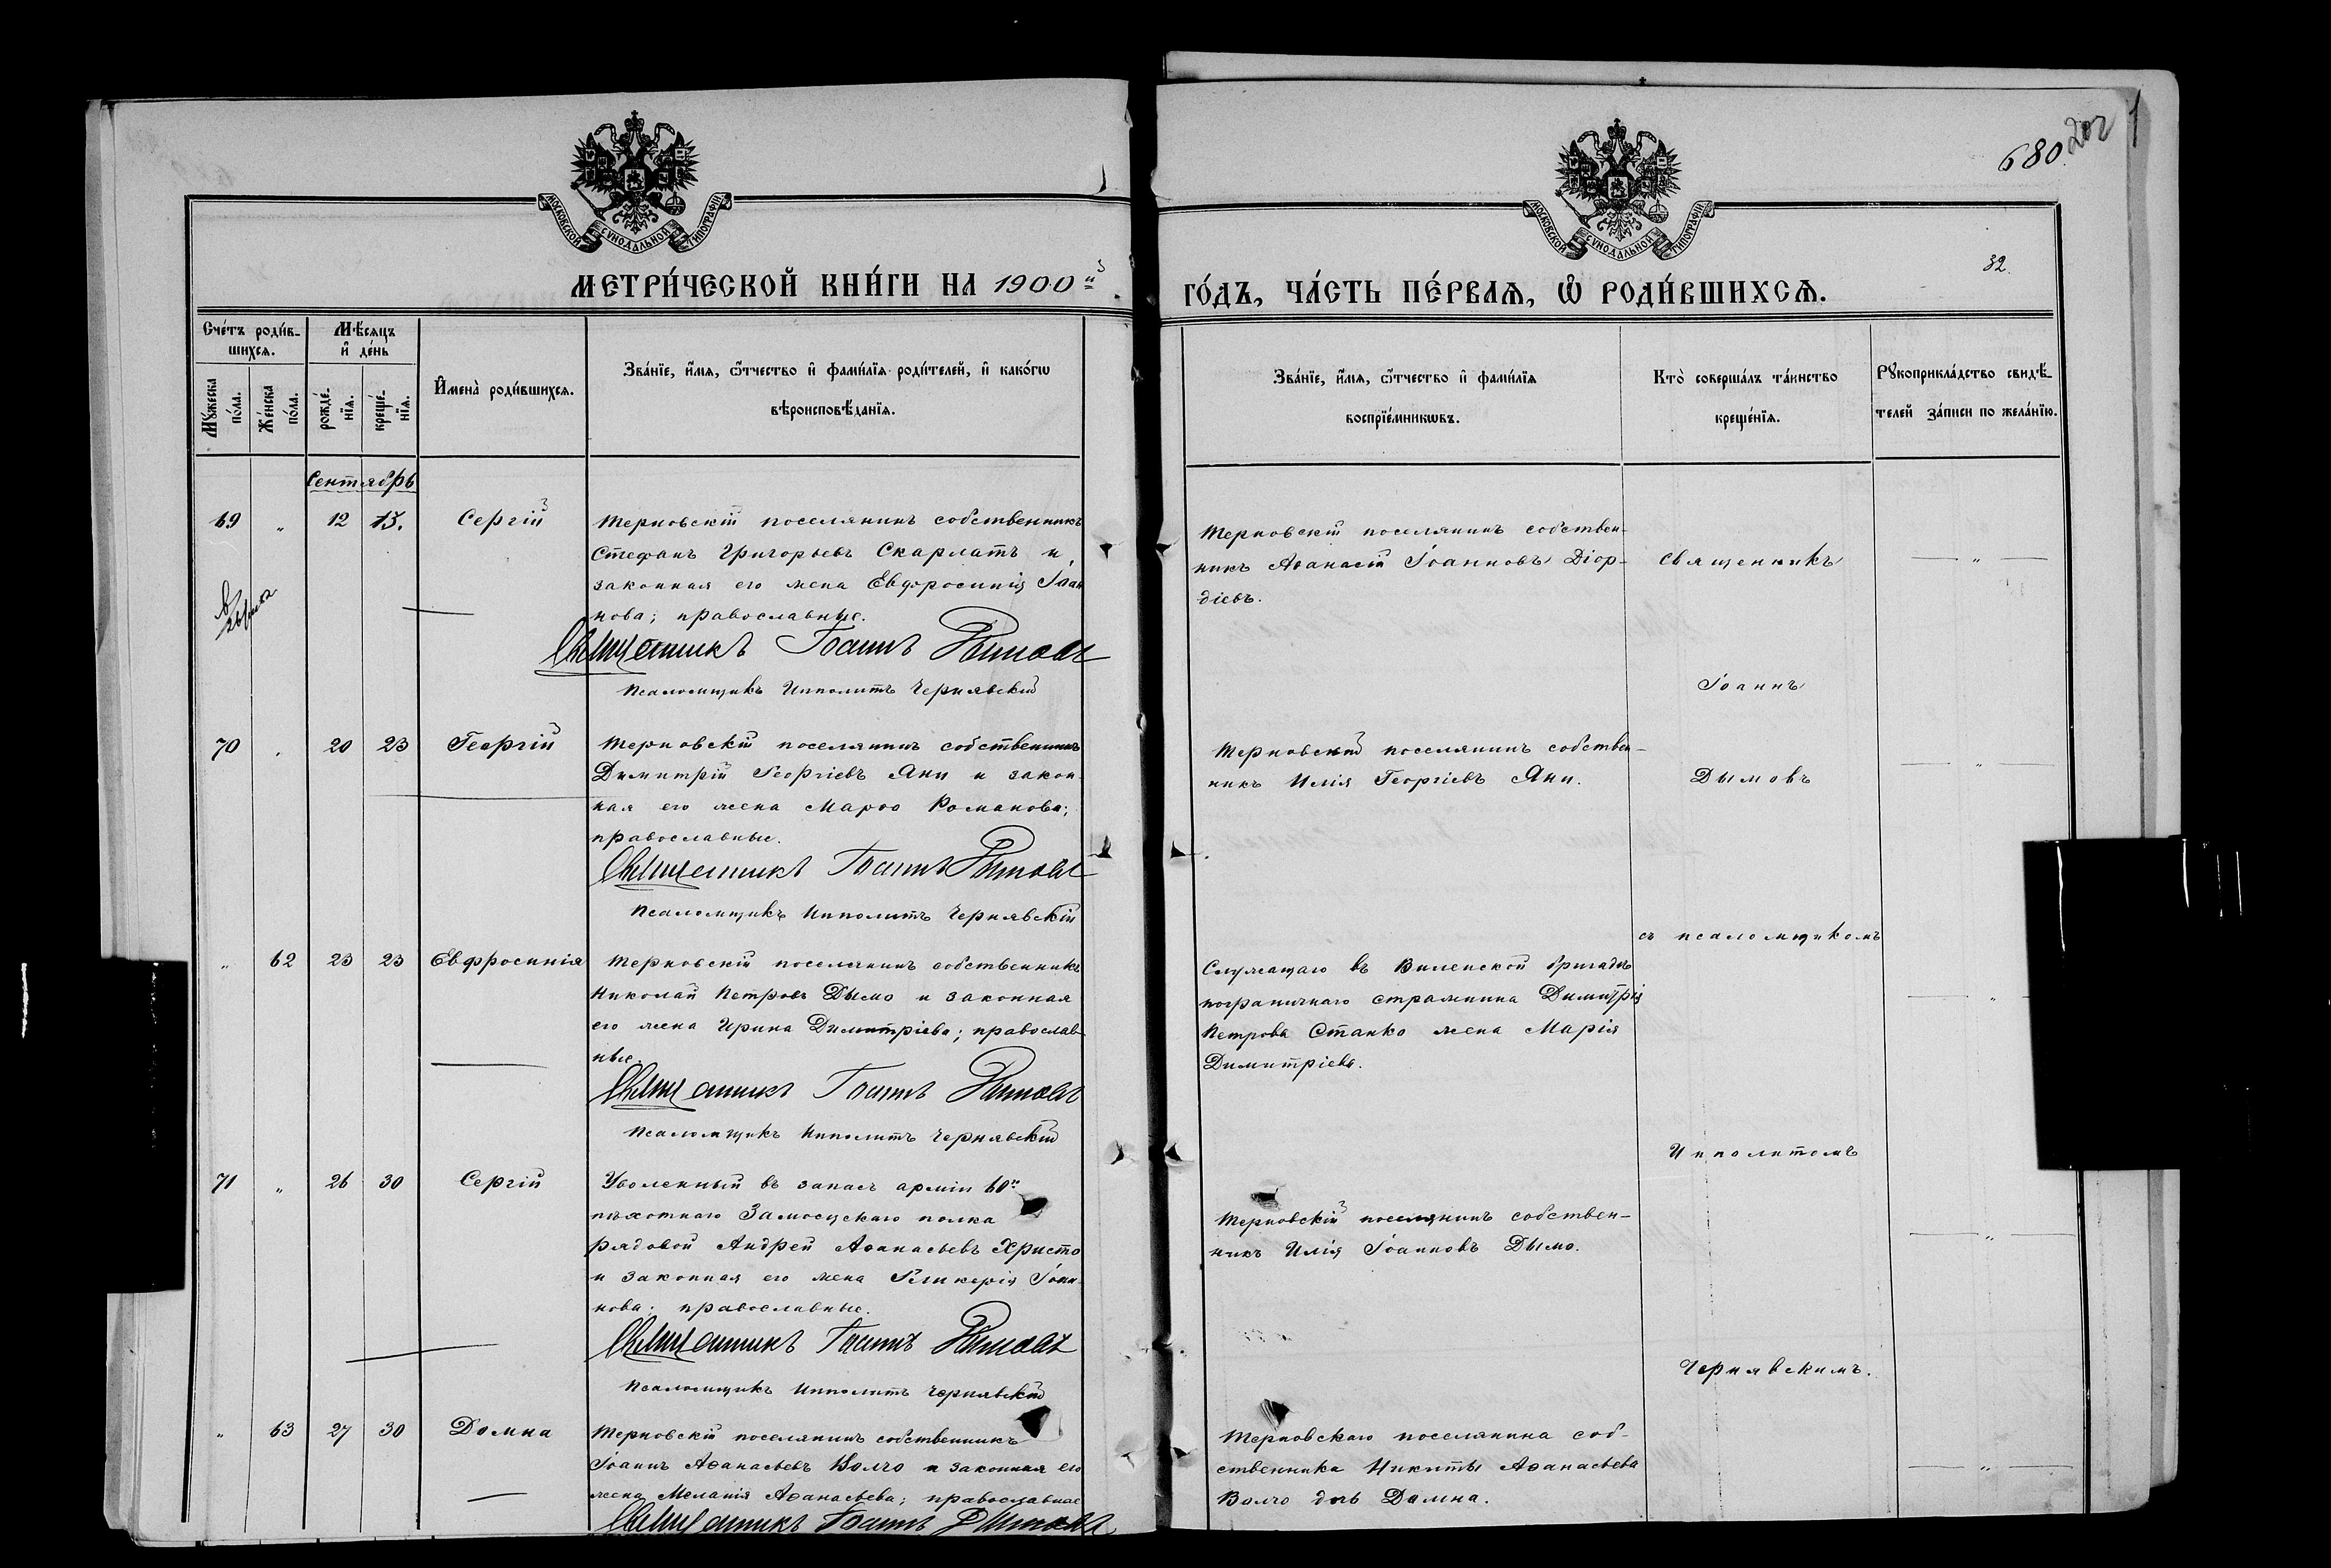 680.
202
МОСКОВСКОЙ СѴНОДАЛЬНОЙ ТИПОГРАФІИ
МОСКОВСКОЙ СѴНОДАЛЬНОЙ ТИПОГРАФІИ
32.
МЕТРИ́ЧЕСКОЙ КНИ́ГИ НА 1900й
ГО́ДЪ, ЧА́СТЬ ПЕ́РВАѦ, Ѽ РОДИ́ВШИХСѦ.
Сче́тъ роди́в-
шихсѧ.
Мꙋ́жеска по́ла.
Же́нска по́ла.
Мѣ́сѧцъ
и҆ де́нь
рожде́нїѧ.
креще́нїѧ.
И҆мена̀ роди́вшихсѧ.
Зва́нїе, и҆́мѧ, ѻ҆́тчество и҆ фами́лїѧ роди́телей, и҆ како́гѡ
вѣроисповѣ́данїѧ.
Зва́нїе, и҆́мѧ, ѻ҆́тчество и҆ фами́лїѧ
воспрїе́мникѡвъ.
Кто̀ соверша́лъ та́инство
креще́нїѧ.
Рꙋкоприкла́дство свидѣ́-
телей за́писи по жела́нїю.
Сентябрь
69 „ 12 13. Сергій
Терновскій поселянинъ собственникъ
Стефанъ Григорьевъ Скарлатъ и
законная его жена Евфросинія Іоан
нова; православные.
Священникъ Іоаннъ Дымовъ
Псаломщикъ Ипполитъ Чернявскій
Терновскій поселянинъ собствен-
никъ Аѳанасій Іоанновъ Діор-
діевъ.
Священникъ
Іоаннъ
70 „ 20 23 Георгій
Терновскій поселянинъ собственникъ
Димитрій Георгіевъ Яни и закон
ная его жена Марѳа Романова;
православные.
Священникъ Іоаннъ Дымовъ
Псаломщикъ Ипполитъ Чернявскій
Терновскій поселянинъ собствен-
никъ Илія Георгіевъ Яни.
Дымовъ
съ псаломщикомъ
„ 62 23 23 Евфросинія
Терновскій поселянинъ собственникъ
Николай Петровъ Дымо и законная
его жена Ирина Димитріева; православ
ные.
Священникъ Іоаннъ Дымовъ
Псаломщикъ Ипполитъ Чернявскій
Служащаго въ Виленской бригадѣ
пограничнаго стражника Димитрія
Петрова Станко жена Марія
Димитріева.
Ипполитомъ
71 „ 26 30 Сергій
Уволенный въ запасъ арміи 60й
пѣхотнаго Замосцскаго полка
рядовой Андрей Аѳанасьевъ Христо
и законная его жена Гликерія Іоан
нова; православные.
Священникъ Іоаннъ Дымовъ
Псаломщикъ Ипполитъ Чернявскій
Терновскій поселянинъ собствен-
никъ Илія Іоанновъ Дымо.
Чернявскимъ.
„ 63 27 30 Домна
Терновскій поселянинъ собственникъ
Іоаннъ Аѳанасьевъ Волчо и законная его
жена Меланія Аѳанасьева; православные
Священникъ Іоаннъ Дымовъ
Терновскаго поселянина соб-
ственника Никиты Аѳанасьева
Волчо дочь Домна.